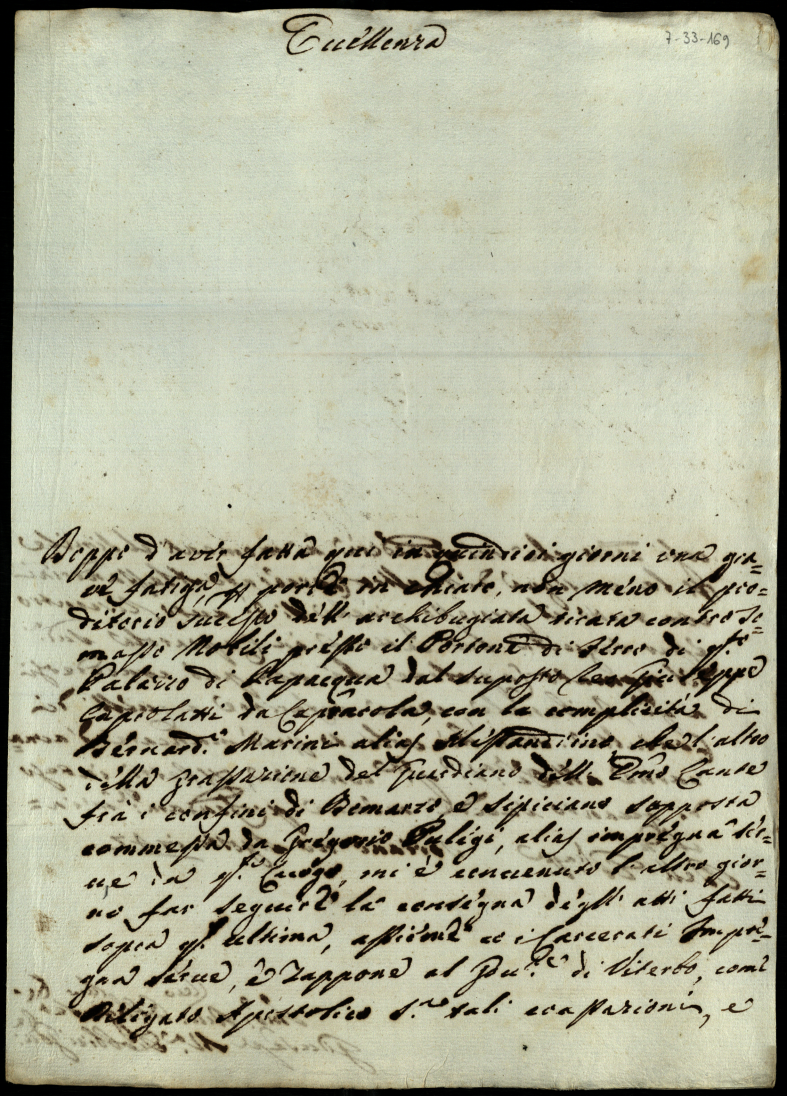 Eccellenza
7-33-169
Doppo d'aver fatta qui in quindici giorni una gra=
ve fatiga, p porre in chiaro, non meno il pro=
ditorio successo dell' archibugiata tirata contro To=
masso Nobili presso il Portone di
Palazzo di Papacqua dal suposto Reo Giuseppe
Caprolatti da Capracola, con la complicità di
Bernard.o Marini alias che l'altro
della grassazione del Guardiano dell' Emo
fra i confini di Bomarzo e Sipiciano supposta
commessa da Gregorio Puligi, alias impregna ser=
ve da q.o Luogo, mi è convenuto l'altro gior=
no far seguire la consegna degl' atti fatti
sopra q.a ultima, assieme co i Carcerati Impre=
gna serve, e Zappone al Gov.re di Viterbo, come
Diligato Apostolico s.a tali grassazioni, e